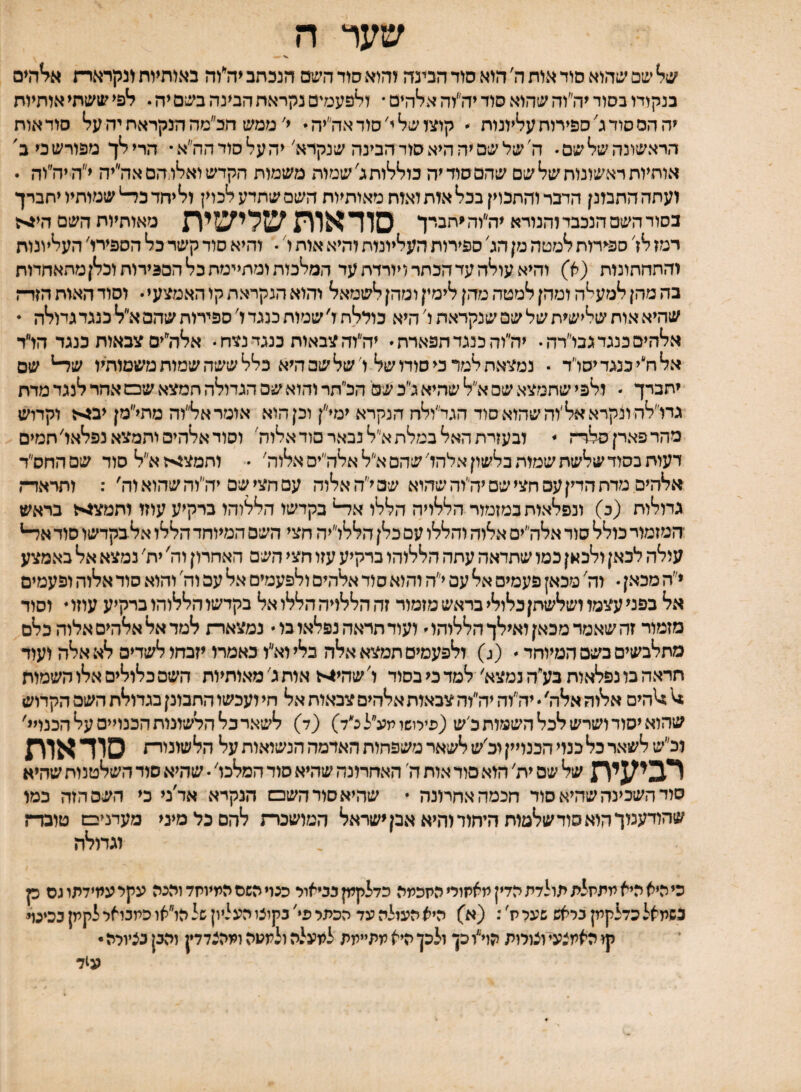 שער ה
של שם שהוא סוד אות ה' הוא סוד הבינה והוא סוד השם הנכתב יה"וה באותיות ונקראת אלהים
בנקודו בסוד יה"וה שהוא סוד יה"וה אלהים · ולפעמים נקראת הבינה בשם יה · לפי ששתי אותיות
יה הם סוד ג' ספירות עליונות · קוצו של י' סוד אה"יה · י' ממש חכ"מה הנקראת יה על סוד אות
הראשונה של שם · ה' של שם יה היא סוד הבינה שנקרא' יה על סוד הה"א · הרי לך מפורש כי ב'
אותיות ראשונות של שם שהם סוד יה כוללות ג' שמות משמות הקדש ואלו הם אה"יה י"ה יה"וה ·
ועתה התבונן הדבר והתכוין בכל אות ואות מאותיות השם שתדע לכוין וליחד כל שמותיו יתברך
בסוד השם הנכבד והנורא יה"וה יתברך סוד אות שלישית מאותיות השם היא
רמז לז' ספירות למטה מן הג' ספירות העליונות והיא אות ו' · והיא סוד קשר כל הספירו' העליונות
והתחתונות (א) והיא עולה עד הכתר ויורדת עד המלכות ומתיימת כל הספירות וכלן מתאחדות
בה מהן למעלה ומהן למטה מהן לימין ומהן לשמאל והוא הנקראת קו האמצעי · וסוד האות הזה
שהיא אות שלישית של שם שנקראת ו' היא כוללת ו' שמות כנגד ו' ספירות שהם א"ל כנגד גדולה ·
אלהים כנגד גבו"רה · יה"וה כנגד תפארת · יה"וה צבאות כנגד נצח · אלה"ים צבאות כנגד הו"ד
אל ח"י כנגד יסו"ד · נמצאת למד כי סודו של ו' של שם היא כלל ששה שמות משמותיו של שם
יתברך · ולפי שתמצא שם א"ל שהיא ג"כ שם הכ"תר והוא שם הגדולה תמצא שם אחר לנגד מדת
גדו"לה ונקרא אל'וה שהוא סוד הגד"ולה הנקרא ימי"ן וכן הוא אומר אל"וה מתי"מן יבא וקדוש
מהר פארן סלה · ובעזרת האל במלת א"ל נבאר סוד אלוה' וסוד אלהים ותמצא נפלאו' תמים
דעות בסוד שלשת שמות בלשון אלהו' שהם א"ל אלה"ים אלוה' · ותמצא א"ל סוד שם החס"ד
אלהים מדת הדין עם חצי שם יה"וה שהוא שם י"ה אלוה עם חצי שם יה"וה שהוא וה' : ותראה
גדולות (ב) ונפלאות במזמור הללויה הללו אל בקדשו הללוהו ברקיע עוזו ותמצא בראש
המזמור כולל סוד אלה"ים אלוה והללו עם כלן הללו"יה חצי השם המיוחד הללו אל בקדשו סוד אל
עולה לכאן ולכאן כמו שתראה עתה הללוהו ברקיע עזו חצי השם האחרון וה' ית' נמצא אל באמצע
י"ה מכאן · וה' מכאן פעמים אל עם י"ה והוא סוד אלהים ולפעמים אל עם וה' והוא סוד אלוה ופעמים
אל בפני עצמו ושלשתן כלולי בראש מזמור זה הללויה הללו אל בקדשו הללוהו ברקיע עוזו · וסוד
מזמור זה שאמר מכאן ואילך הללוהו · ועוד תראה נפלאו בו · נמצאת למד אל אלהים אלוה כלם
מתלבשים בשם המיוחד · (ג) ולפעמים תמצא אלה בלי וא"ו כאמרו יזבחו לשדים לא אלה ועוד
תראה בו נפלאות בע"ה נמצא' למד כי בסוד ו' שהיא אות ג' מאותיות השם כלולים אלו השמות
אל אלהים אלוה אלה' · יה"וה יה"וה צבאות אלהים צבאות אל חי ועכשו התבונן בגדולת השם הקדוש
שהוא יסוד ושרש לכל השמות כ"ש (פירושו מע"ל כ"ד) (ד) לשאר כל הלשונות הכנויים על הכנויי'
וכ"ש לשאר כל כנוי הכנויין וכ"ש לשאר משפחות האדמה הנשואות על הלשונות סוד אות
רביעית של שם ית' הוא סוד אות ה' האחרונה שהיא סוד המלכו' · שהיא סוד השלטנות שהיא
סוד השכינה שהיא סוד חכמה אחרונה · שהיא סוד השם הנקרא אד"ני כי השם הזה כמו
שהודענוך הוא סוד שלמות היחוד והיא אבן ישראל המושכת להם כל מיני מעדנים טובה
וגדולה
כי היא היא מתחלת תולדת הדין מאחורי החכמה כדלקמן בביאור כנוי השם המיוחד והנה עקר עמידתו גם כן
בשמאל כדלקמן בראש שער ח' : (א) היא העולה עד הכתר פי' בקוצו העליון של הו"או כמבואר לקמן בכינוי
קו האמצעי וצורות הוי"ו כך ולכך היא מתיימת למעלה ולמטה ומהצדדין והבן בציורה ·
עוד